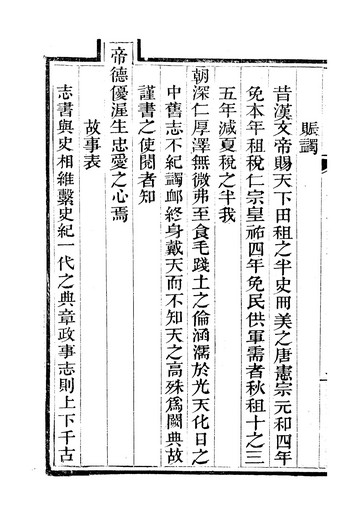 賑蠲
昔漢文帝賜天下田租之半史冊美之唐憲宗元和四年
免本年租稅仁宗皇祐四年免民供軍需者秋租十之三
五年減夏稅之半我
朝深仁厚澤無微弗至食毛踐土之倫涵濡於光天化日之
中舊志不紀蠲䘏終身戴天而不知天之高殊爲闕典故
謹書之使閱者知
帝德優渥生忠愛之心焉
故事表
志書與史相維繫史紀一代之典章政事志則上下千古